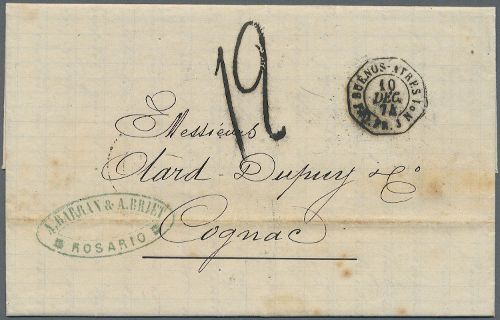 12
BUENOS-AYRES 1o
10
DEC.
74
PAQ. FR. J No
Messieurs
Otard-Dupuy & Co
Cognac
A. BARRAN & A. BRIET
ROSARIO